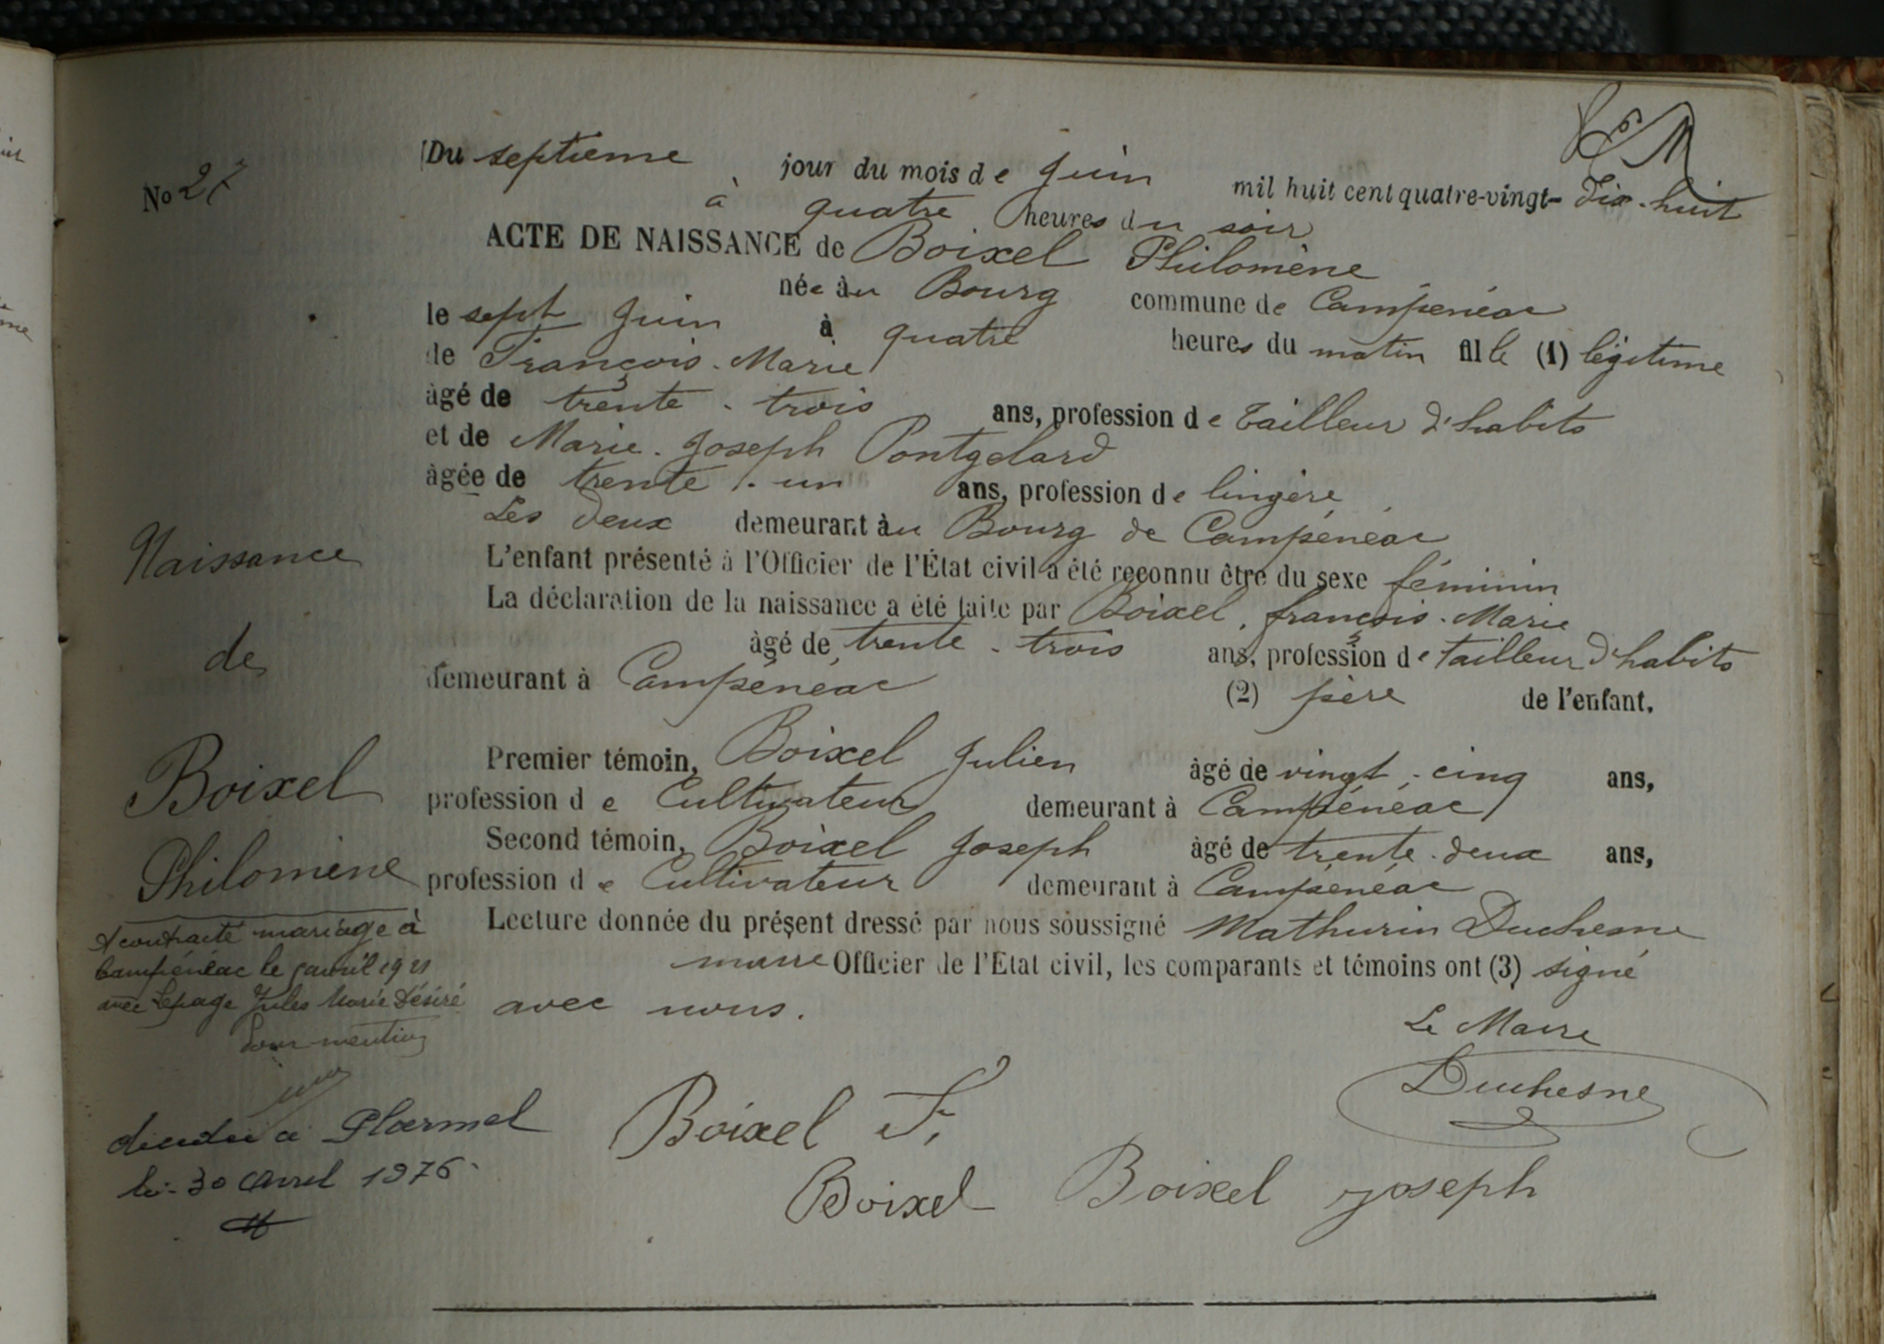 No 27
Du septième jour du mois de Juin mil huit cent quatre-vingt-dix-huit
à quatre heures du soir
ACTE DE NAISSANCE de Boixel Philomène
née au Bourg commune de Campénéac
le sept Juin à quatre heures du matin fille (1) légitime
de François-Marie
âgé de trente-trois ans, profession de tailleur d'habits
et de Marie-Joseph Pontgelard
âgée de trente-un ans, profession de lingère
Les deux demeurant au Bourg de Campénéac
L'enfant présenté à l'Officier de l'État civil a été reconnu être du sexe féminin
La déclaration de la naissance a été faite par Boixel, françois-Marie
âgé de trente-trois ans, profession de tailleur d'habits
demeurant à Campénéac (2) père de l'enfant.
Premier témoin, Boixel Julien âgé de vingt-cinq ans,
profession de Cultivateur demeurant à Campénéac
Second témoin, Boixel Joseph âgé de trente-deux ans,
profession de Cultivateur demeurant à Campénéac
Lecture donnée du présent dressé par nous soussigné Mathurin Duchesne
maire Officier de l'État civil, les comparants et témoins ont (3) signé
avec nous.
Le Maire
Duchesne
Boixel F.
Boixel Boixel Joseph
Naissance
de
Boixel
Philomène
A contracté mariage à
Campénéac le 5 avril 1921
avec Lepage Jules Marie Désiré
Pour mention
décédée à Ploermel
le 30 Avril 1976